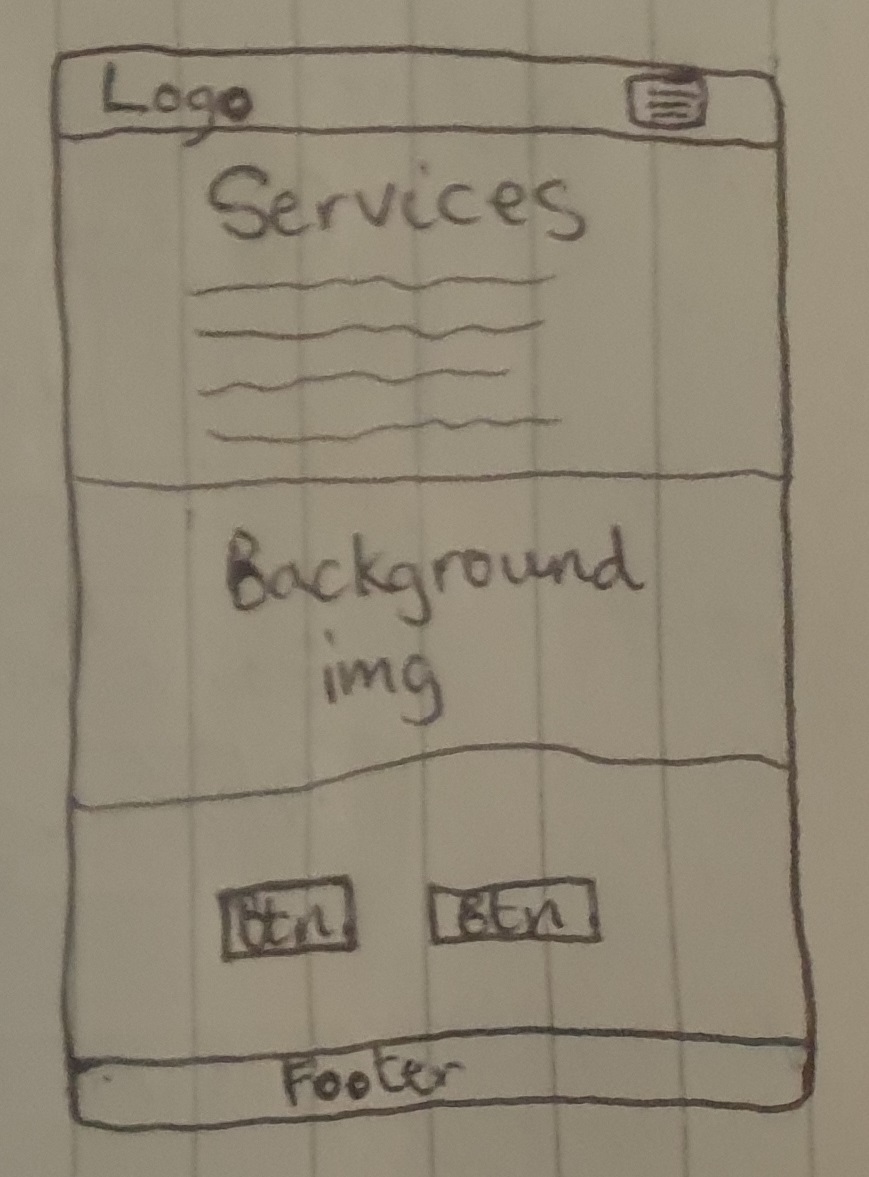 Logo
Services
Background
img
Btn Btn
Footer